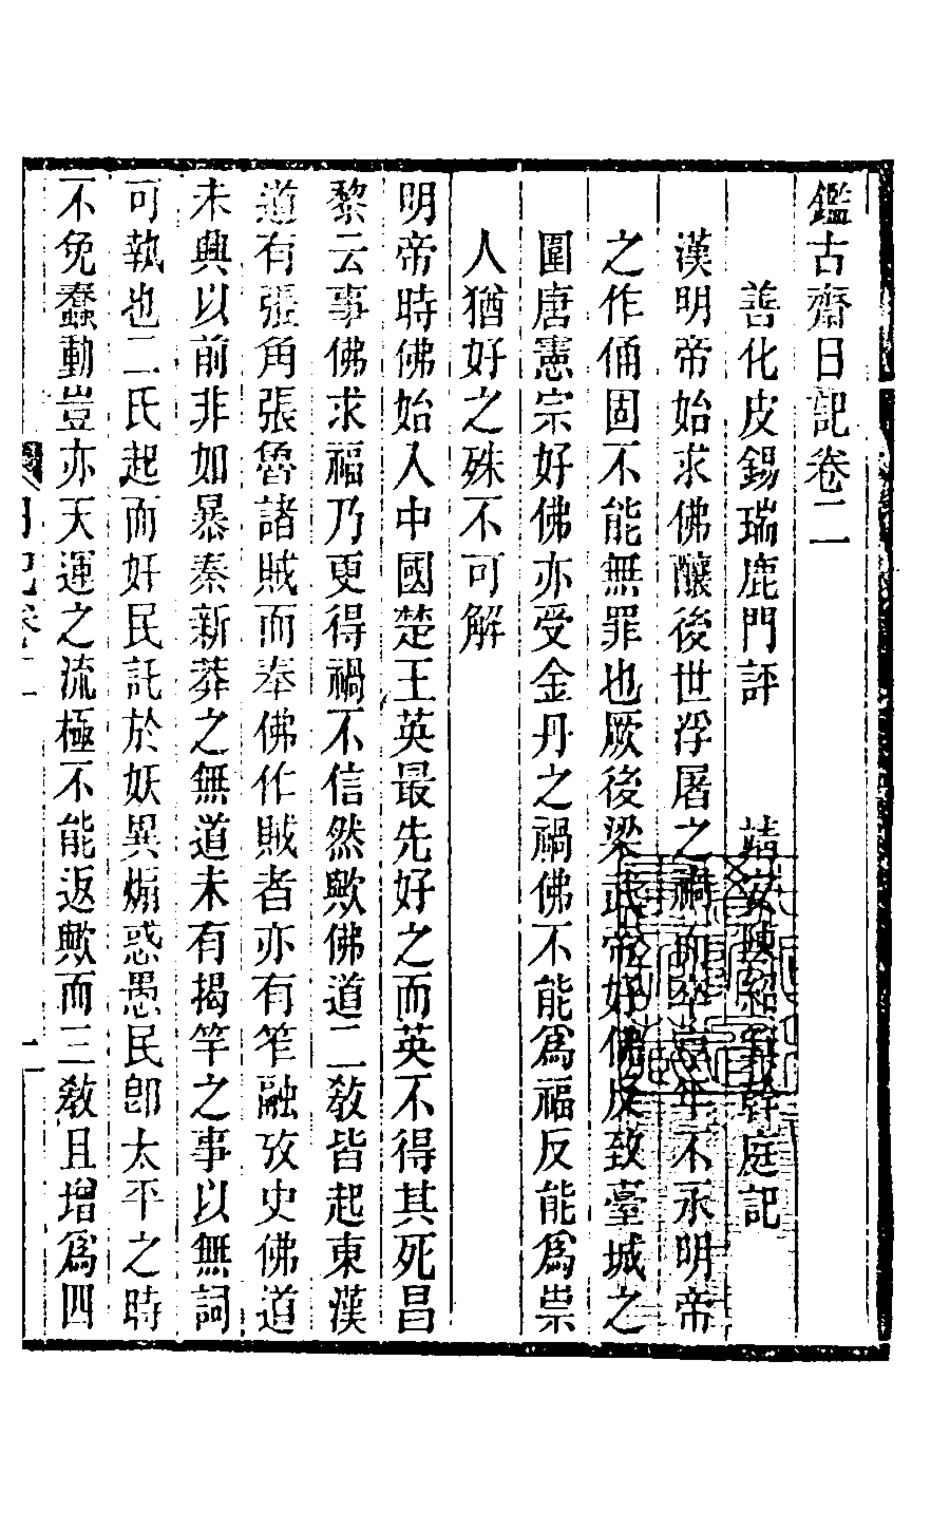 鑑古齋日記卷二
善化皮錫瑞鹿門評　靖安陳紹箕幹庭記
漢明帝始求佛釀後世浮屠之禍而卒享年不永明帝
之作俑固不能無罪也厥後梁武帝好佛反致臺城之
圍唐憲宗好佛亦受金丹之禍佛不能爲福反能爲祟
人猶好之殊不可解
明帝時佛始入中國楚王英最先好之而英不得其死昌
黎云事佛求福乃更得禍不信然歟佛道二敎皆起東漢
道有張角張魯諸賊而奉佛作賊者亦有笮融攷史佛道
未興以前非如暴秦新莽之無道未有揭竿之事以無詞
可執也二氏起而奸民託於妖異煽惑愚民卽太平之時
不免蠢動豈亦天運之流極不能返歟而三敎且增爲四
日記卷二